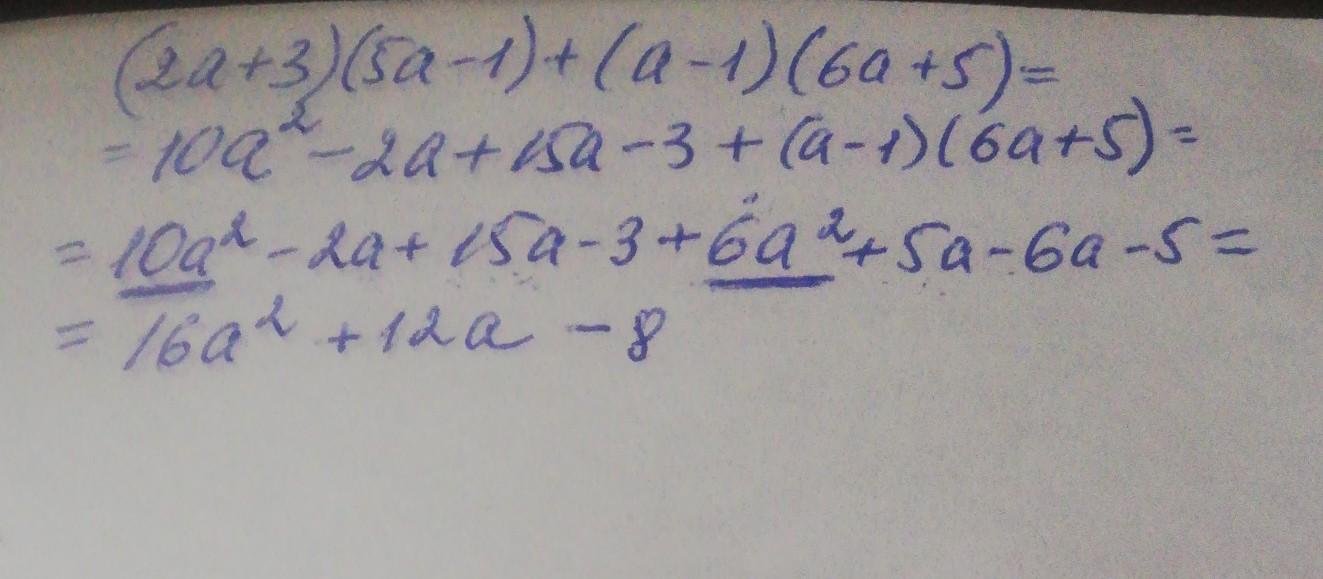 (2a+3)(5a-1)+(a-1)(6a+5)=
=10a²-2a+15a-3+(a-1)(6a+5)=
=10a²-2a+15a-3+6a²+5a-6a-5=
=16a²+12a-8